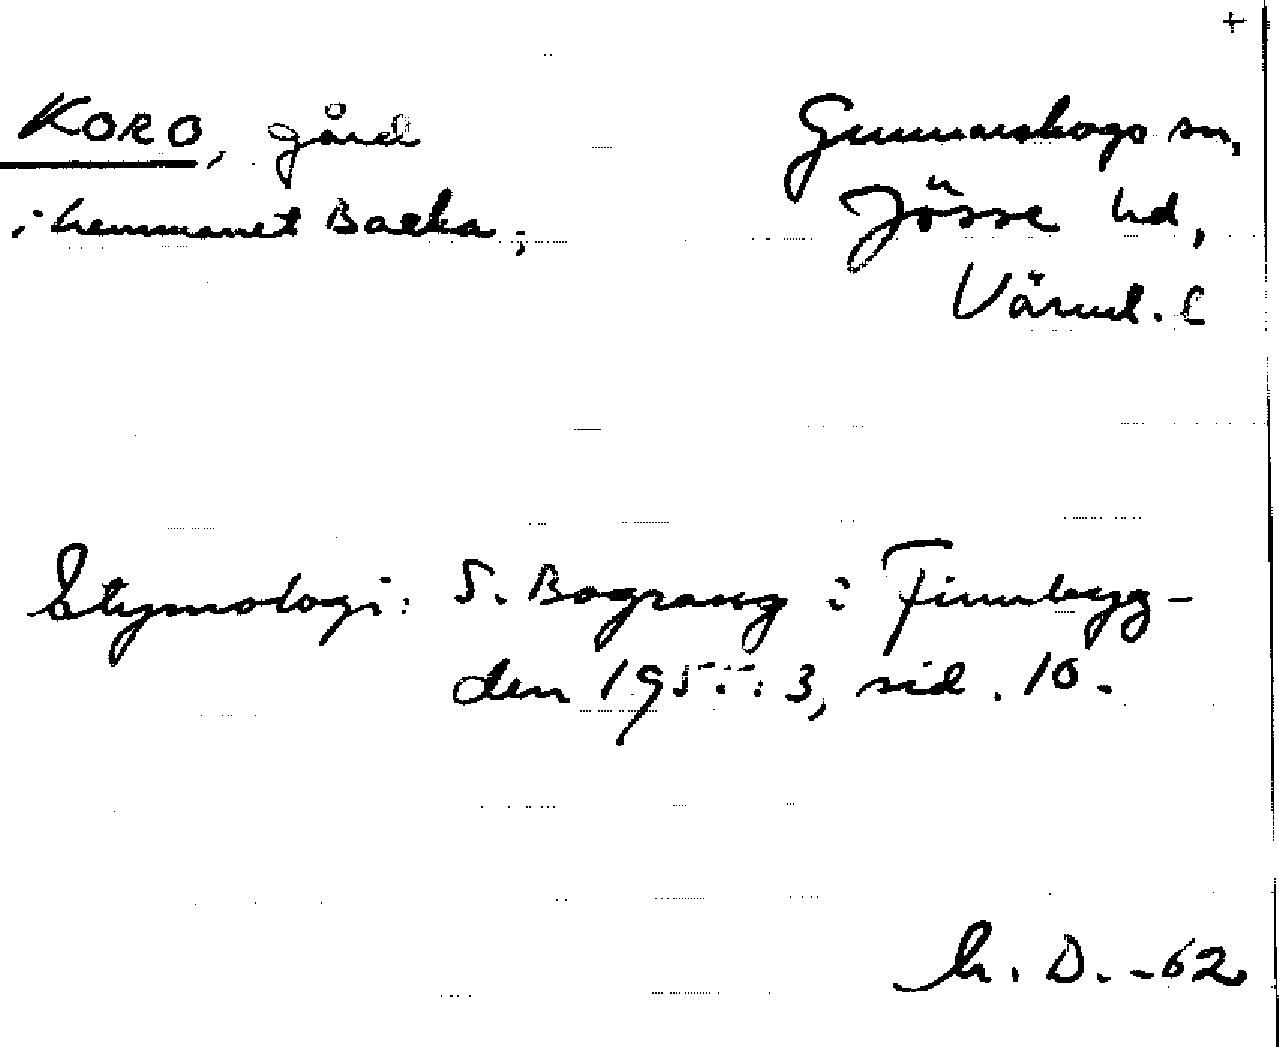 +
KORO, gård
i hemmanet Backa;
Gunnarskogs sn,
Jösse hd,
Värml. l
Etymologi: S. Bograng i Finnbyg-
den 195 : 3, sid. 10.
D. -62